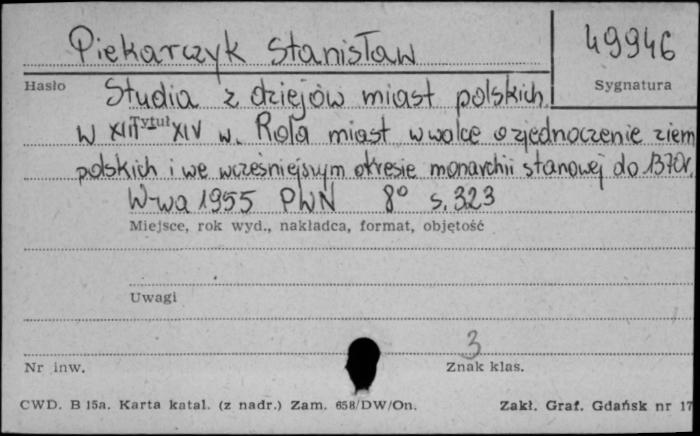 Piekarczyk Stanisław
49946
Hasło
Sygnatura
Studia z dziejów miast polskich
Tytuł
w XIII-XIV w. Rola miast w walce o zjednoczenie ziem
polskich i we wcześniejszym okresie monarchii stanowej do 1370r.
W-wa 1955 PWN 8° s. 323
Miejsce, rok wyd., nakładca, format, objętość
Uwagi
3
Nr inw.
Znak klas.
CWD. B 15a. Karta katal. (z nadr.) Zam. 658/DW/On.
Zakł. Graf. Gdańsk nr 17